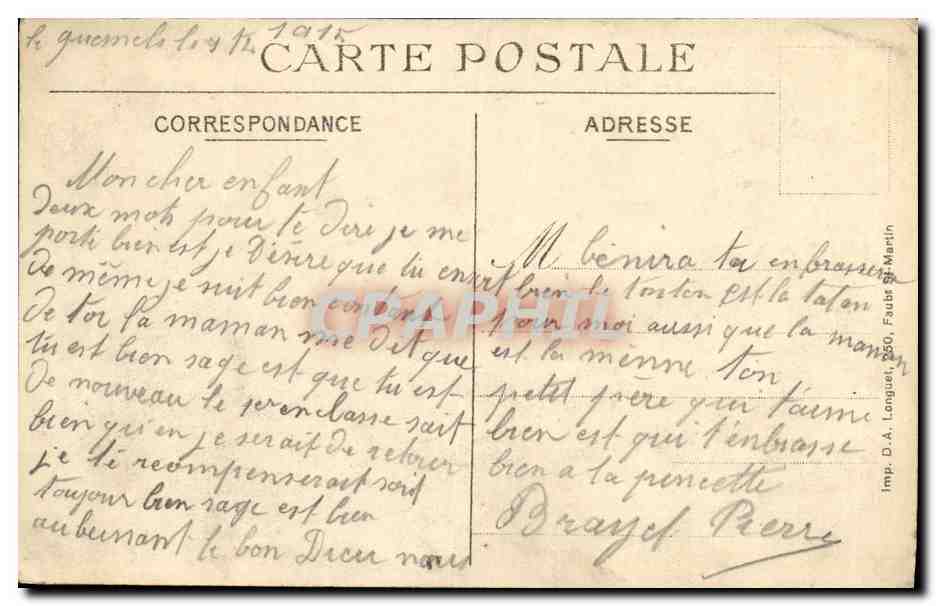 le 1915
CARTE POSTALE
CORRESPONDANCE
ADRESSE
Mon cher enfant
deux mots pour te dire je me
porte bien est je désire que tu en
de même je suit bien contant
de toi la maman me dit que
tu est bien sage est que tu est
de nouveau le 1er en classe soit
bien qu'en je serait de retour
je te recompenserait soit
toujour bien sage est bien
aubeissant le bon Dieu nous
bénira tu enbrassera
bien le tonton est la tatan
pour moi aussi que la maman
est la mémé ton
petit père qui t'aime
bien est qui t'enbrasse
bien a la pincette
Brayet Pierre
Imp. D.A. Longuet, 250, Faubg St-Martin
CPAPHIL